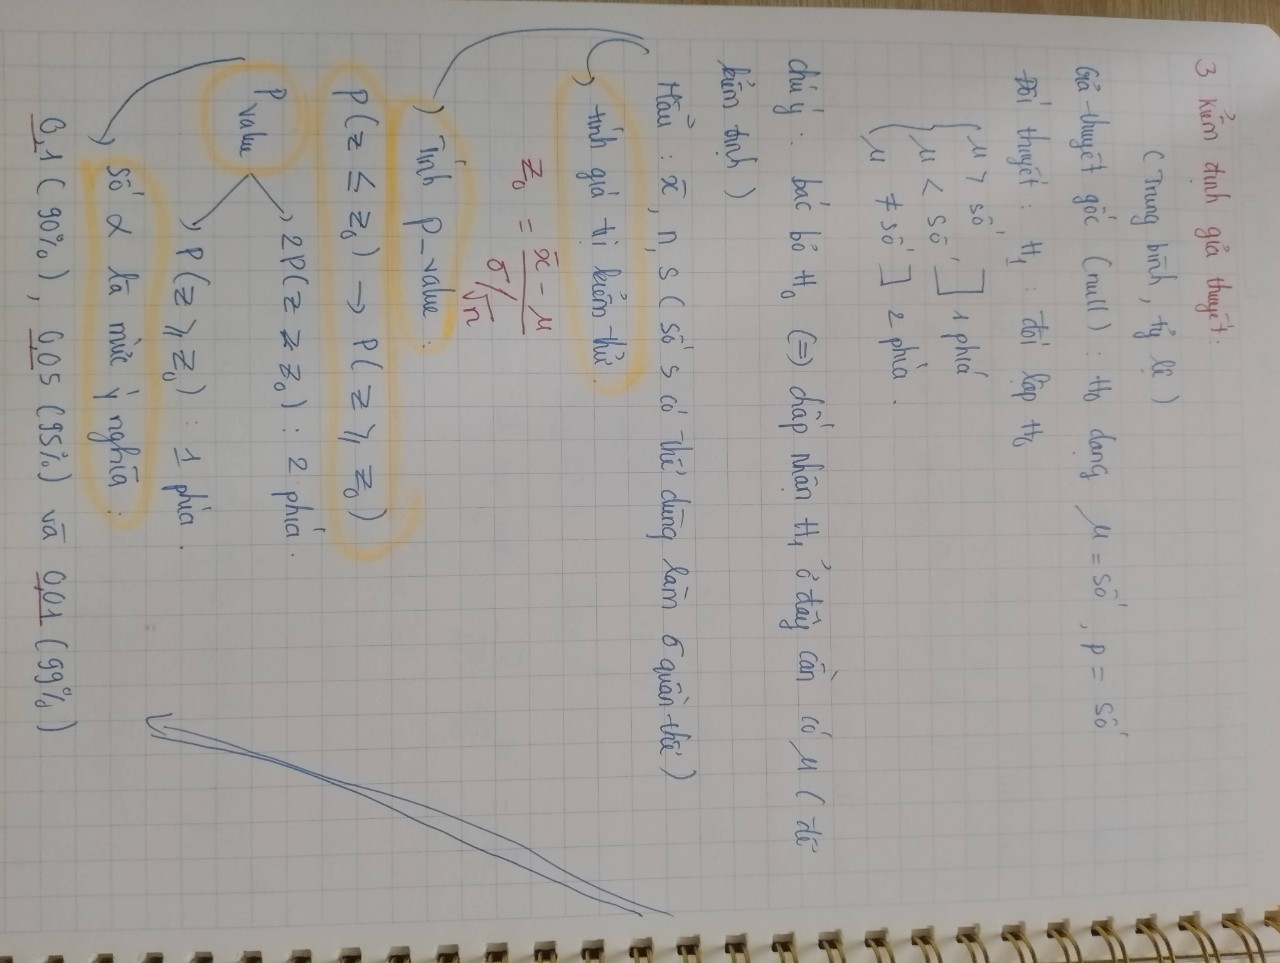 3 kiểm định giả thuyết:
(Trung bình, tỷ lệ)
Giả thuyết gốc (null): H₀ dạng μ = số, p = số
Đối thuyết: H₁ : đối lập H₀
μ > số
μ < số ] 1 phía
μ ≠ số ] 2 phía.
chú ý: bác bỏ H₀ (=) chấp nhận H₁ ở đây cần có μ (để
kiểm định)
Mẫu: x̄, n, s (số s có thể dùng làm σ quần thể)
tính giá trị kiểm thử.
z₀ = (x̄ - μ) / (σ/√n)
Tính p_value:
P(z ≤ z₀) → P(z ⩾ z₀)
P value
2P(z ≥ z₀) : 2 phía.
P(z ⩾ z₀) : 1 phía.
Số α là mức ý nghĩa:
0,1 (90%), 0,05 (95%) và 0,01 (99%)